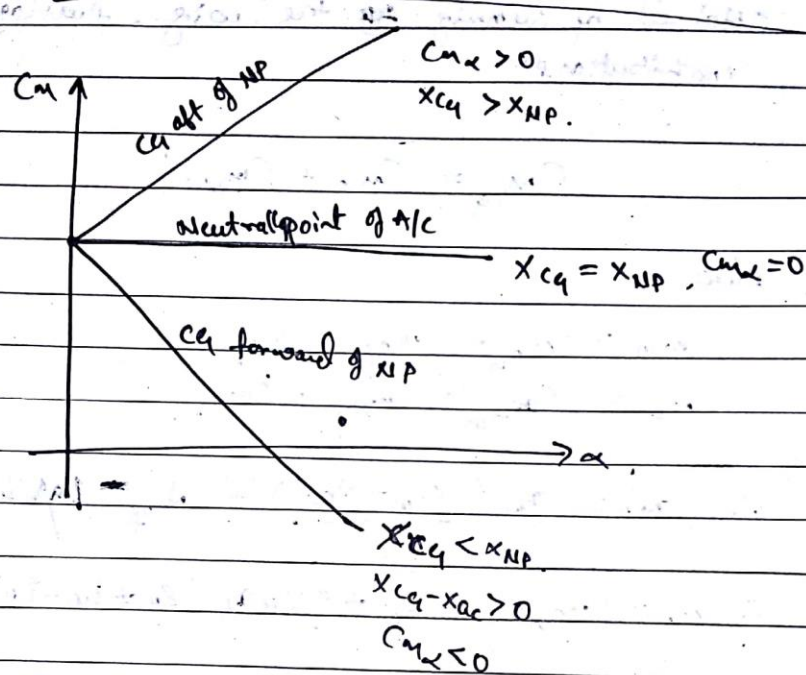 Cmα > 0
XCG > XNP.
CM
CG aft of NP
Neutral point of A/C
XCG = XNP, Cmα = 0
CG forward of NP
α.
XCG < XNP
XCG - Xac > 0
Cmα < 0